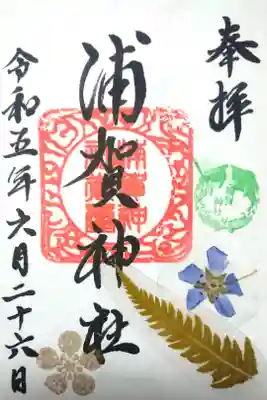 奉拝
浦賀神社
令和五年六月二十六日